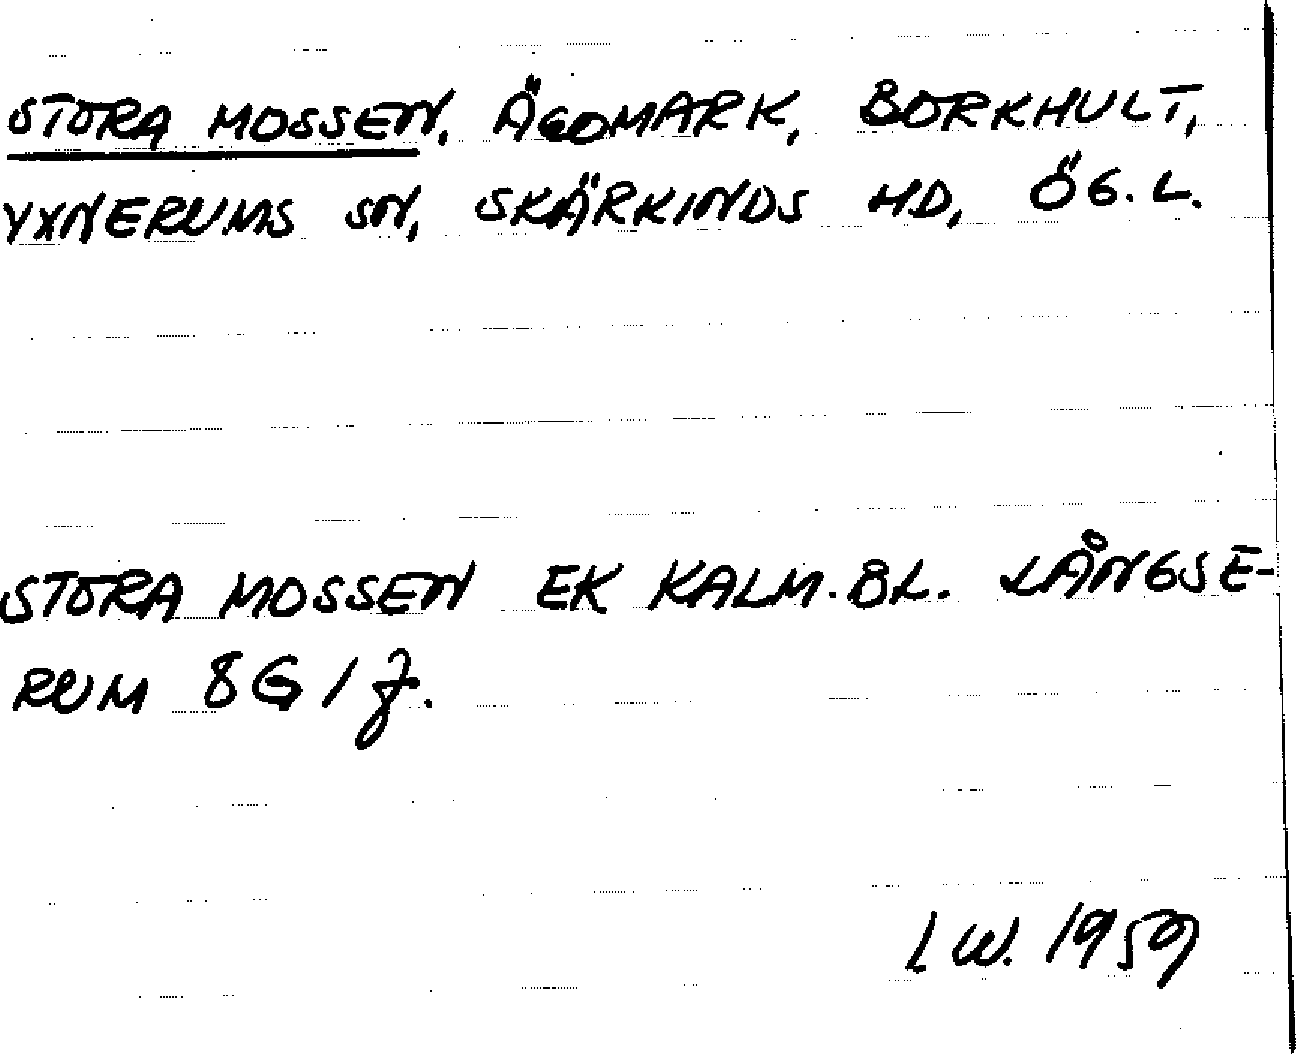 STORA MOSSEN, ÄGOMARK, BORKHULT,
YXNERUMS SN, SKÄRKINDS HD, ÖG.L.
STORA MOSSEN EK KALM.BL. LÅNGSE-
RUM 8G/f.
LW. 1959